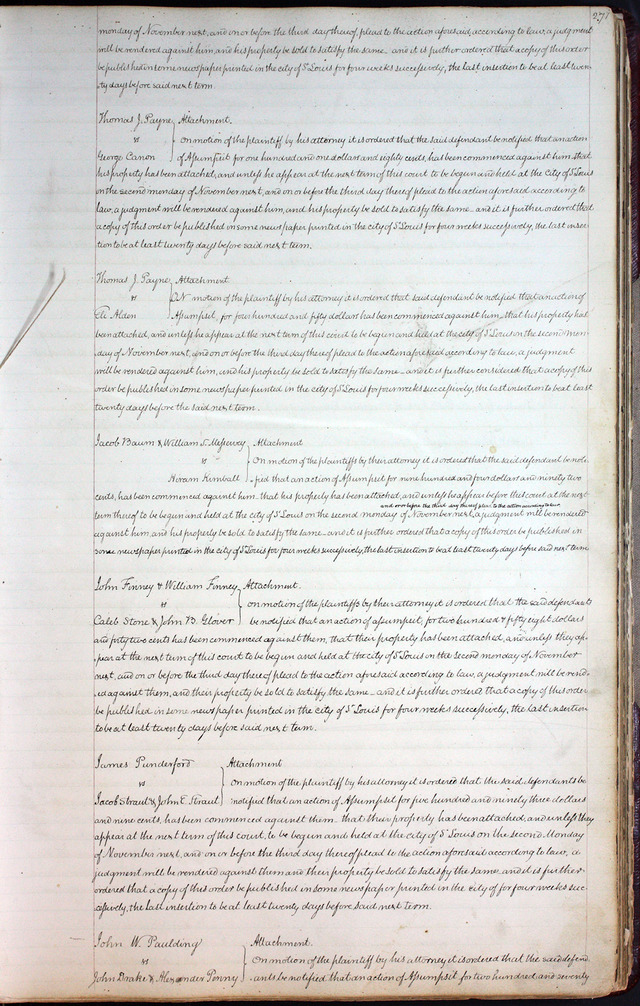 27
monday of November next, and on or before the third day thereof, plead to the action aforesaid, according to law, a judgment
will be rendered against him, and his property be sold to satisfy the same_ and it is further ordered that a copy of this order
be published in some newspaper printed in the city of St Louis for four weeks successively, the last insertion to be at least twen-
-ty days before said next term
Thomas J. Payne } Attachment.
vs On motion of the plaintiff by his attorney it is ordered that the said defendant be notified that an action
George Canon of Assumpsit for one hundred and one dollars and eighty cents, has been commenced against him that
his property has been attached, and unless he appear at the next term of this court to be begun and held at the City of St Louis
on the second monday of November next, and on or before the third day thereof plead to the action aforesaid according to
law, a judgment will be rendered against him, and his property be sold to satisfy the same_ and it is further ordered that
a copy of this order be published in some newspaper printed in the city of St Louis for four weeks successively, the last inser-
tion to be at least twenty days before said next term.
Thomas J. Payne } Attachment
vs ON motion of the plaintiff by his attorney it is ordered that said defendant be notified that an action of
Eli Alden Assumpsit for four hundred and fifty dollars has been commenced against him_ that his property has
been attached, and unless he appear at the next term of this court to be begun and held at the city of St Louis on the second mon-
day of November next, and on or before the third day thereof plead to the action aforesaid according to law, a judgment
will be rendered against him, and his property be sold to satisfy the same_ and it is further considered that a copy of this
order be published in some newspaper printed in the city of St Louis for four weeks successively, the last insertion to be at least
twenty days before the said next term.
Jacob Baum & William S. Messervey } Attachment
vs On motion of the plaintiffs by their attorney it is ordered that the said defendant be noti-
Hiram Kimball -fied that an action of Assumpsit for nine hundred and four dollars and ninety two
cents, has been commenced against him that his property has been attached, and unless he appear before this court at the next
and on or before the third day thereof plead to the action according to law
term thereof to be begun and held at the city of St Louis on the second monday of November next, a judgment will be rendered
against him, and his property be sold to satisfy the same_ and it is further ordered that a copy of this order be published in
some newspaper printed in the city of St Louis for four weeks successively, the last insertion to be at least twenty days before said next term
John Finney & William Finney } Attachment.
vs on motion of the plaintiffs by their attorney it is ordered that the said defendants
Caleb Stone & John B. Glover be notified that an action of assumpsit, for two hundred & fifty eight dollars
and fifty two cents has been commenced against them, that their property has been attached, and unless they ap-
-pear at the next term of this court to be begun and held at the city of St Louis on the second monday of November
next, and on or before the third day thereof plead to the action aforesaid according to law, a judgment will be rend-
-ed against them, and their property be sold to satisfy the same_ and it is further ordered that a copy of this order
be published in some newspaper printed in the city of St Louis for four weeks successively, the last insertion
to be at least twenty days before said next term.
James Punderford } Attachment
vs On motion of the plaintiff by his attorney it is ordered that the said defendants be
Jacob Straut & John E. Straut notified that an action of Assumpsit for five hundred and ninety three dollars
and nine cents, has been commenced against them_ that their property has been attached, and unless they
appear at the next term of this court, to be begun and held at the city of St Louis on the second Monday
of November next, and on or before the third day thereof plead to the action aforesaid according to law, a
judgment will be rendered against them and their property be sold to satisfy the same_ and it is further
ordered that a copy of this order be published in some newspaper printed in the city of for four weeks suc-
-cessively, the last insertion to be at least twenty days before said next term.
John W Paulding } Attachment.
vs On motion of the plaintiff by his attorney it is ordered that the said defend
John Drake & Alexander Penny ants be notified that an action of Assumpsit for two hundred and seventy